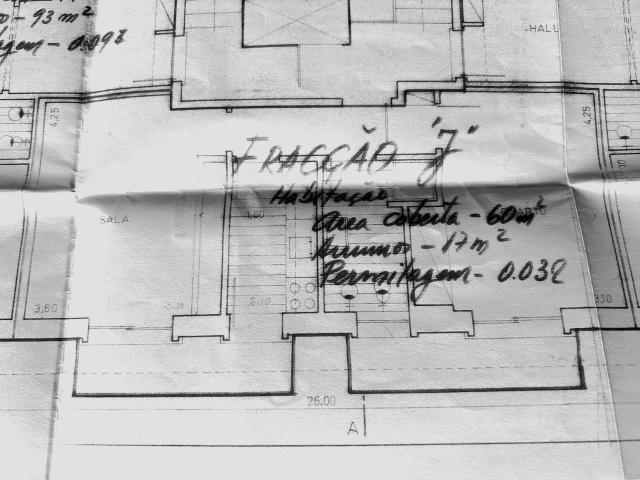 - 93 m²
0.092
HALL
4,25
4,25
FRACÇÃO "J"
Habitação
Área coberta - 60m²
Arrumos - 17m²
Permilagem - 0.032
SALA
1,60
3,60
26.00
A